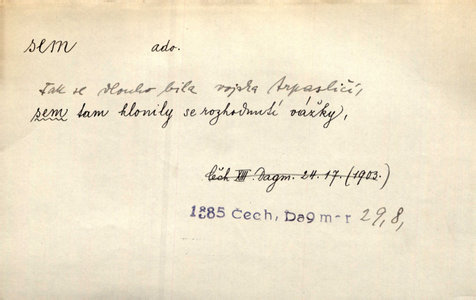 sem ado.
Tak se dlouho bila vojska trpasličí,
sem tam klonily se rozhodnutí vážky,
Čech XIII. Dagm. 24. 17. (1903.)
1885 Čech, Dagmar 29,8,